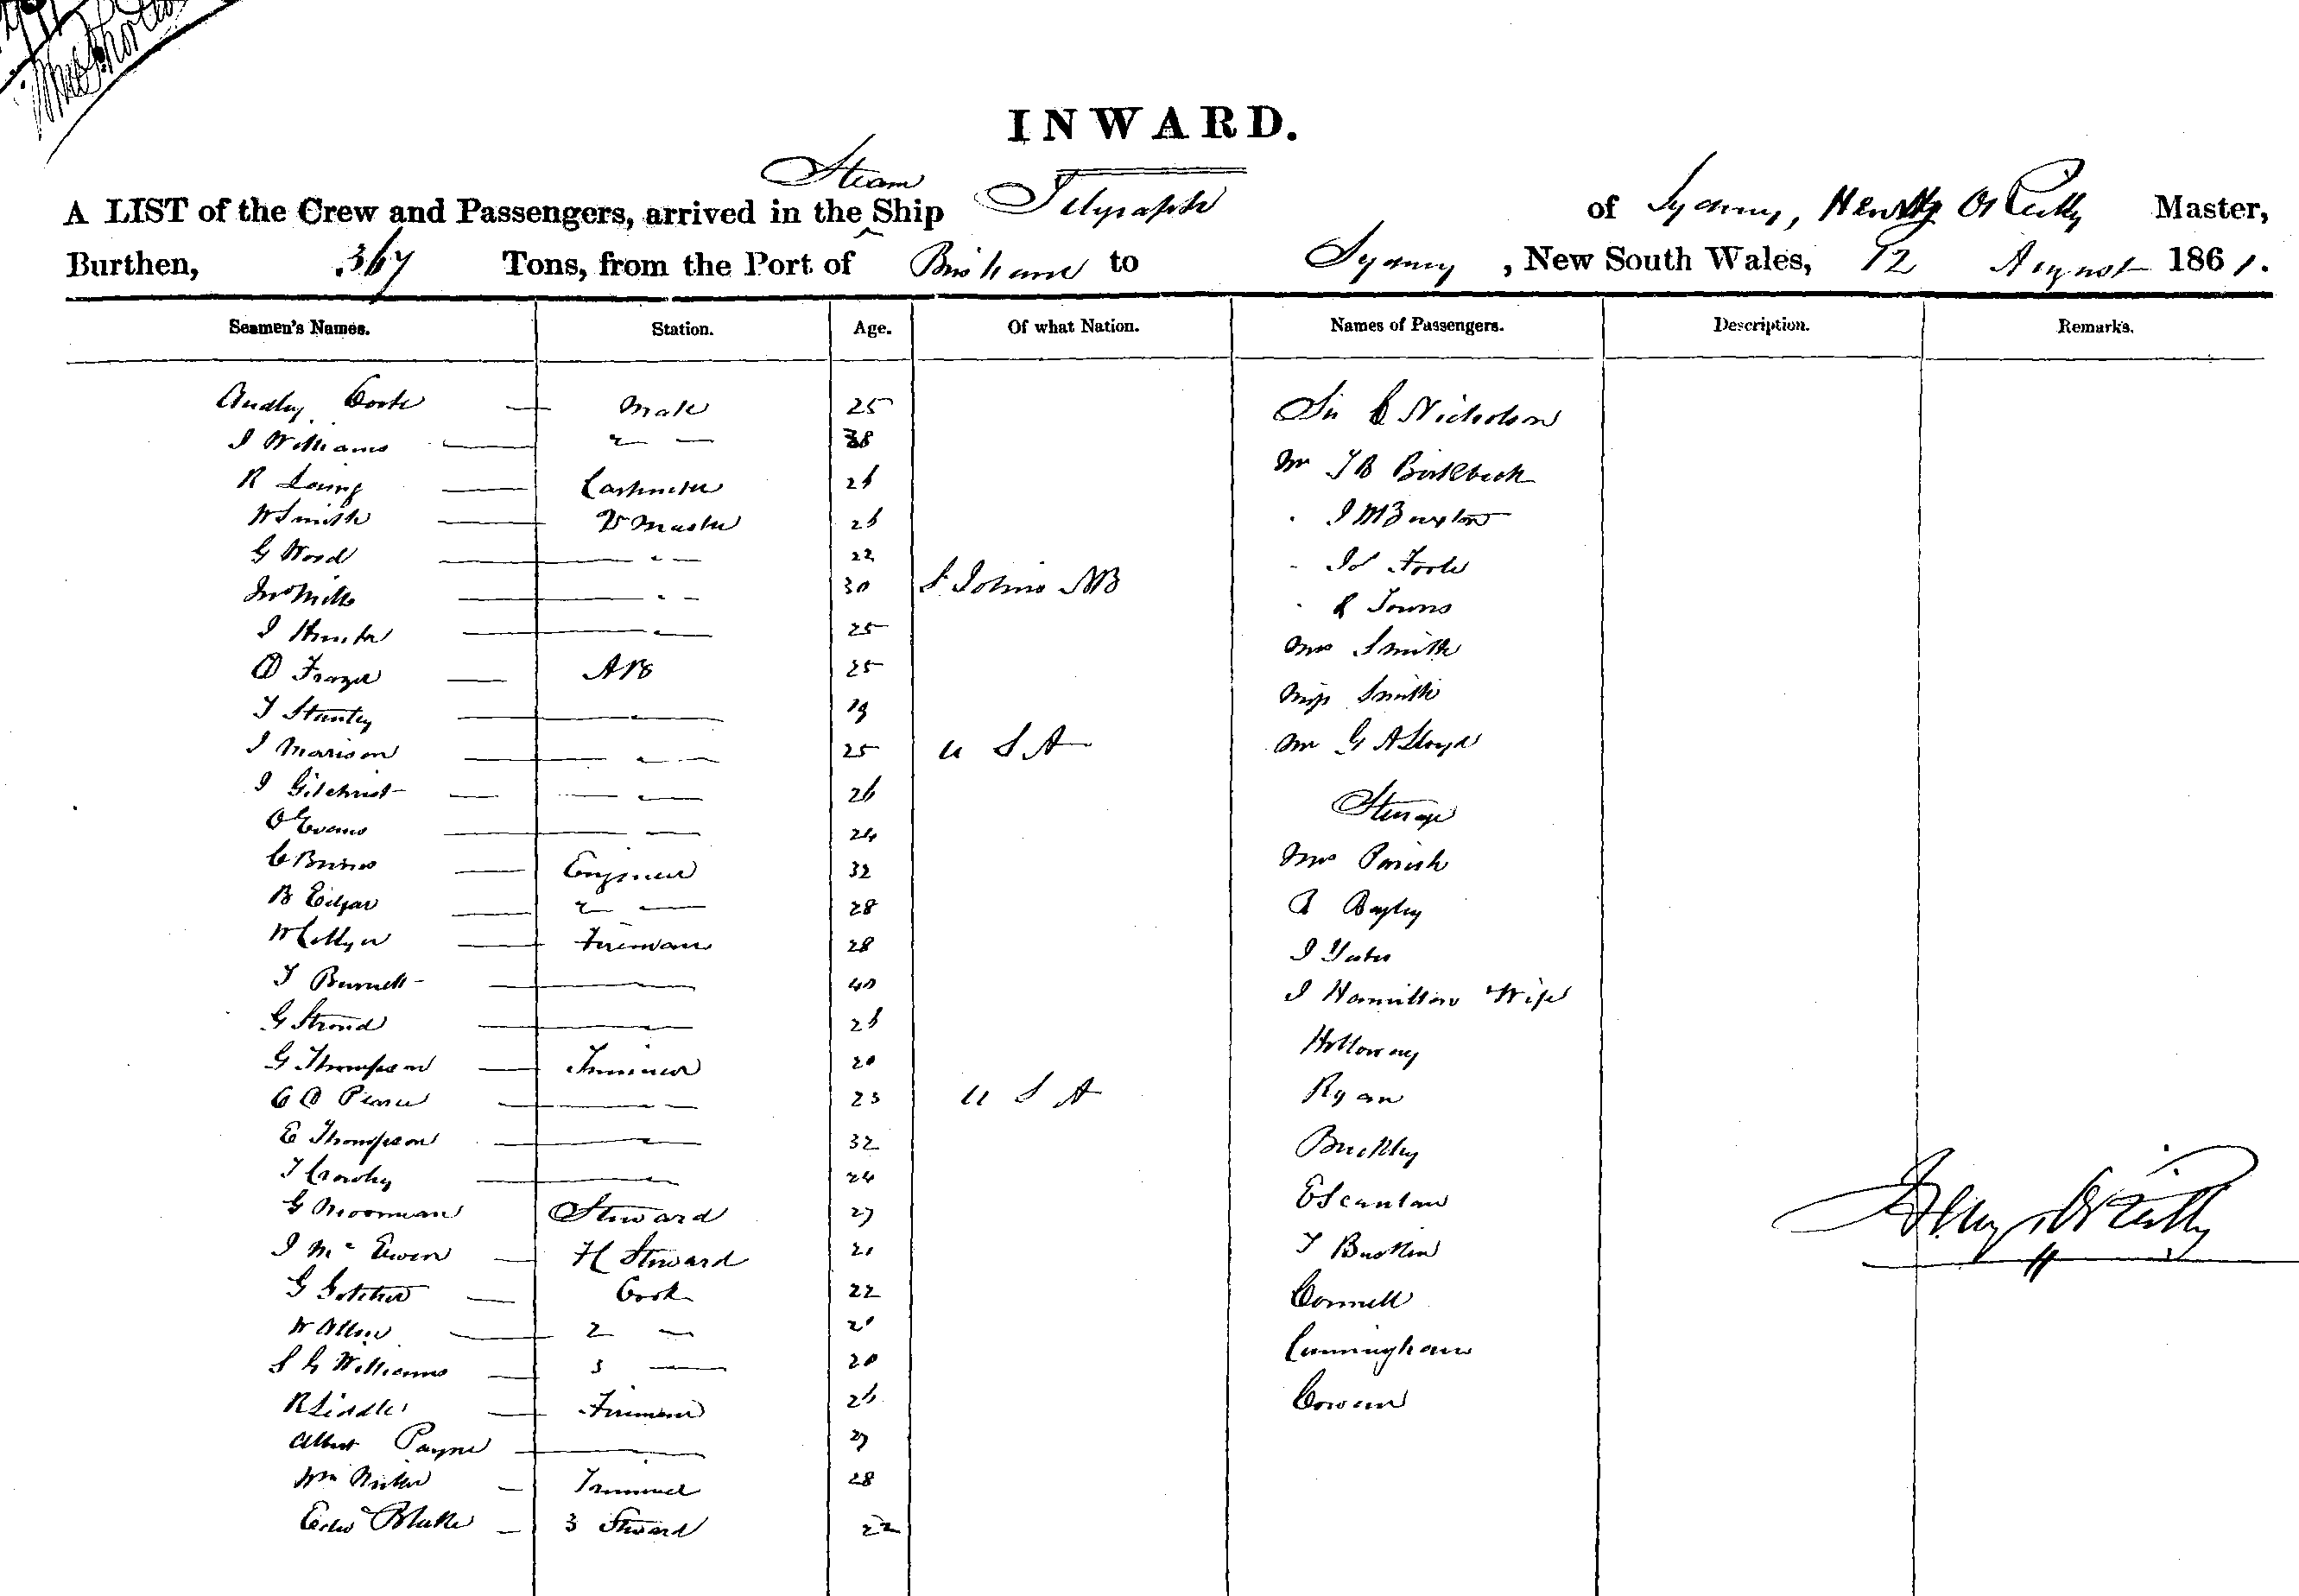 INWARD.
A LIST of the Crew and Passengers, arrived in the Steam Ship Telegraph of Sydney, Henry O'Reilly Master,
Burthen, 367 Tons, from the Port of Brisbane to Sydney, New South Wales, 12 August 1861.
Seamen's Names. Station. Age. Of what Nation. Names of Passengers. Description. Remarks.
Audley Coote — Mate 25 Sir C Nicholson
J Williams — 2 — 38 Mr J B Birkbeck
R Laing — Carpenter 26 " J M Buxton
W Smith — Qr Master 26 " Js Foote
G Wood — " — 22 " R Towns
Jno Mills — " — 30 St Johns NB Mrs Smith
J Hunter — " — 25 Miss Smith
D Frazer — AB 25 Mr G A Lloyd
T Stanley — " — 19 Steerage
J Marison — " — 25 U S A Mrs Parish
J Gilchrist — " — 26 Bagley
O Evans — — 24 J Yates
C Burns — Engineer 32 J Hamilton Wife
B Edgar — 2 — 28 Holloway
W Collyer — Fireman 28 Ryan
T Burnett — 40 Buckley
G Stroud — " — 26 E Scanlan
G Thompson — Trimmer 20 T Buskin
C D Pearce — " — 23 U S A Connell
E Thompson — " — 32 Cunningham
T Crowley — " — 24 Cowan
G Moorman Steward 27 Henry O'Reilly
J McEwen — H Steward 21
G — Cook 22
W Allen — 2 — 21
S G Williams — 3 — 20
R Liddle — Fireman 26
Albert Payne — 27
Wm — Trimmer 28
Edwd Blake — 3 Steward 22